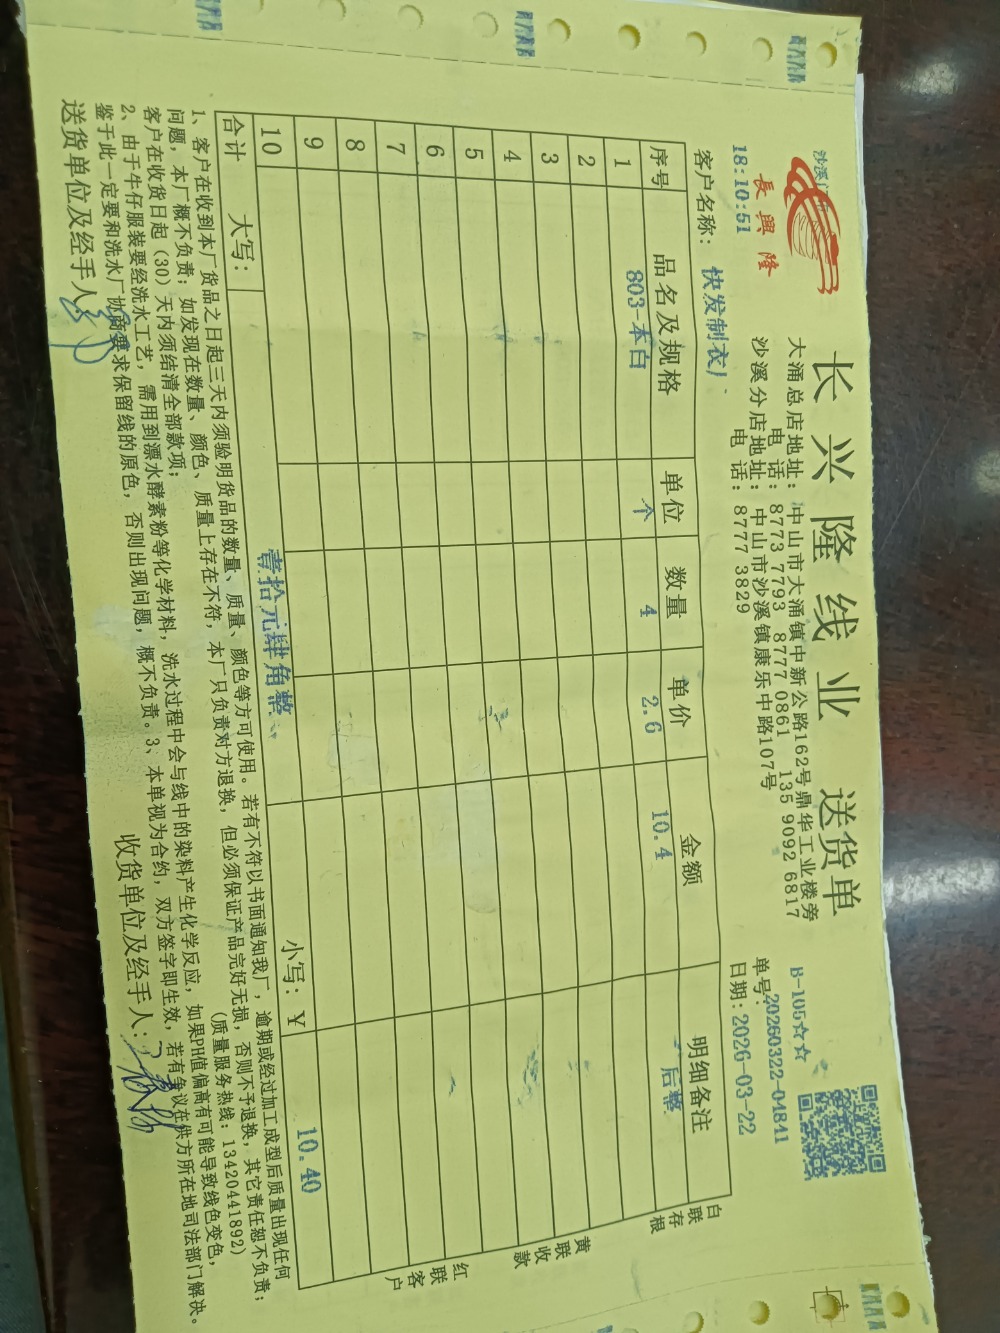 长兴隆线业 送货单
長興隆
沙溪
18:10:51
大涌总店地址：中山市大涌镇中新公路162号鼎华工业楼旁
电 话：8773 7793 8777 0861 135 9092 6817
沙溪分店地址：中山市沙溪镇康乐中路107号
电 话：8777 3829
B-105☆☆☆
单号：20260322-04841
日期：2026-03-22
客户名称：快发制衣厂
序号 品名及规格 单位 数量 单价 金额 明细备注
1 803-本白 个 4 2.6 10.4 后整
2
3
4
5
6
7
8
9
10
合计 大写：壹拾元肆角整 小写：¥ 10.40
白联存根
黄联收款
红联客户
1、客户在收到本厂货品之日起三天内须验明货品的数量、质量、颜色等方可使用。若有不符以书面通知我厂，逾期或经过加工成型后质量出现任何
问题，本厂概不负责；如发现在数量、颜色、质量上存在不符，本厂只负责对方退换，但必须保证产品完好无损，否则不予退换，其它责任恕不负责；
客户在收货日起（30）天内须结清全部款项； （质量服务热线：13420441892）
2、由于牛仔服装要经洗水工艺，需用到漂水酵素粉等化学材料，洗水过程中会与线中的染料产生化学反应，如果PH值偏高有可能导致线色变色，
鉴于此一定要和洗水厂协商要求保留线的原色，否则出现问题，概不负责。3、本单视为合约，双方签字即生效，若有争议在供方所在地司法部门解决。
送货单位及经手人： 收货单位及经手人：